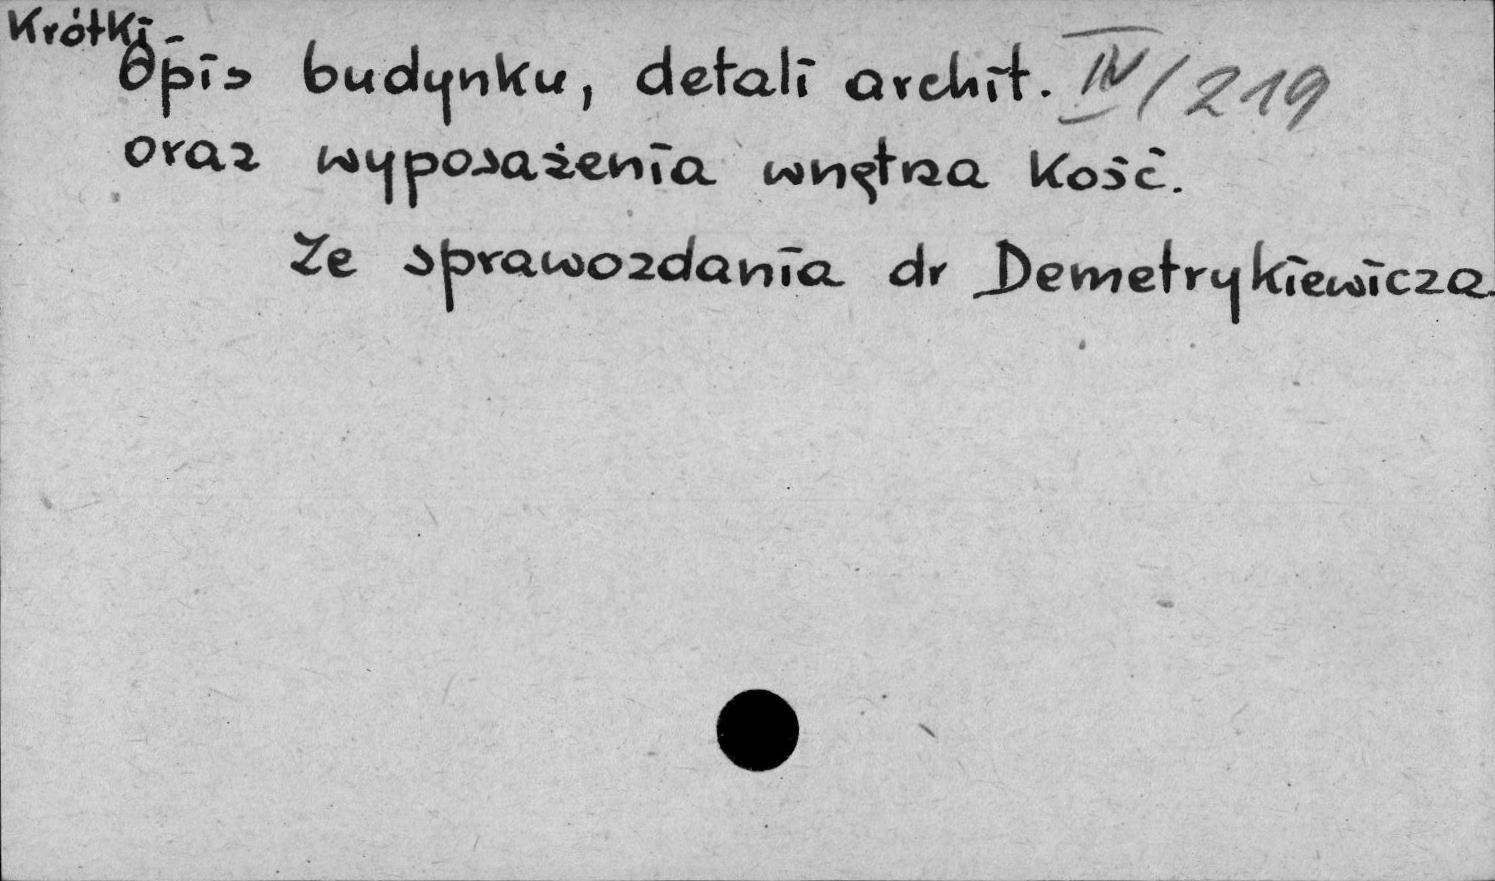 Krótki -
Opis budynku, detali archit. IV/219
oraz wyposażenia wnętrza Kość.
Ze sprawozdania dr Demetrykiewicza